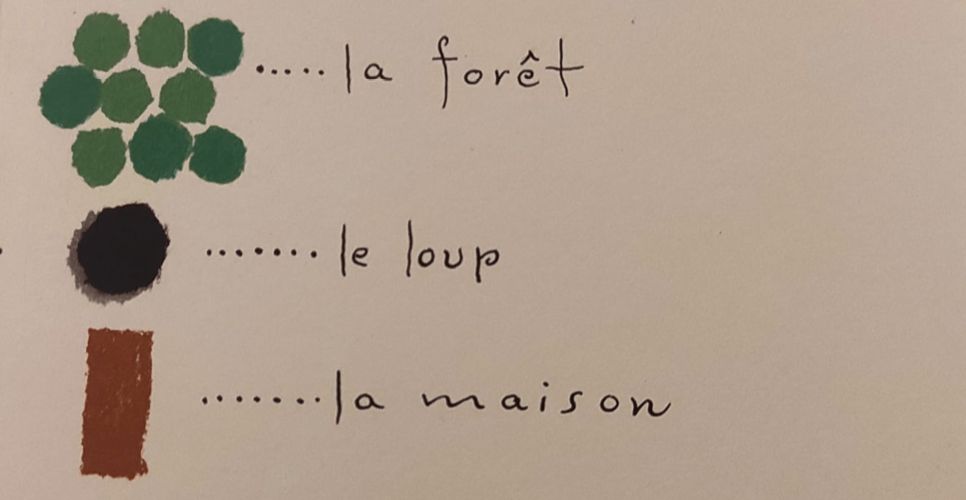 ..... la forêt
....... le loup
....... la maison